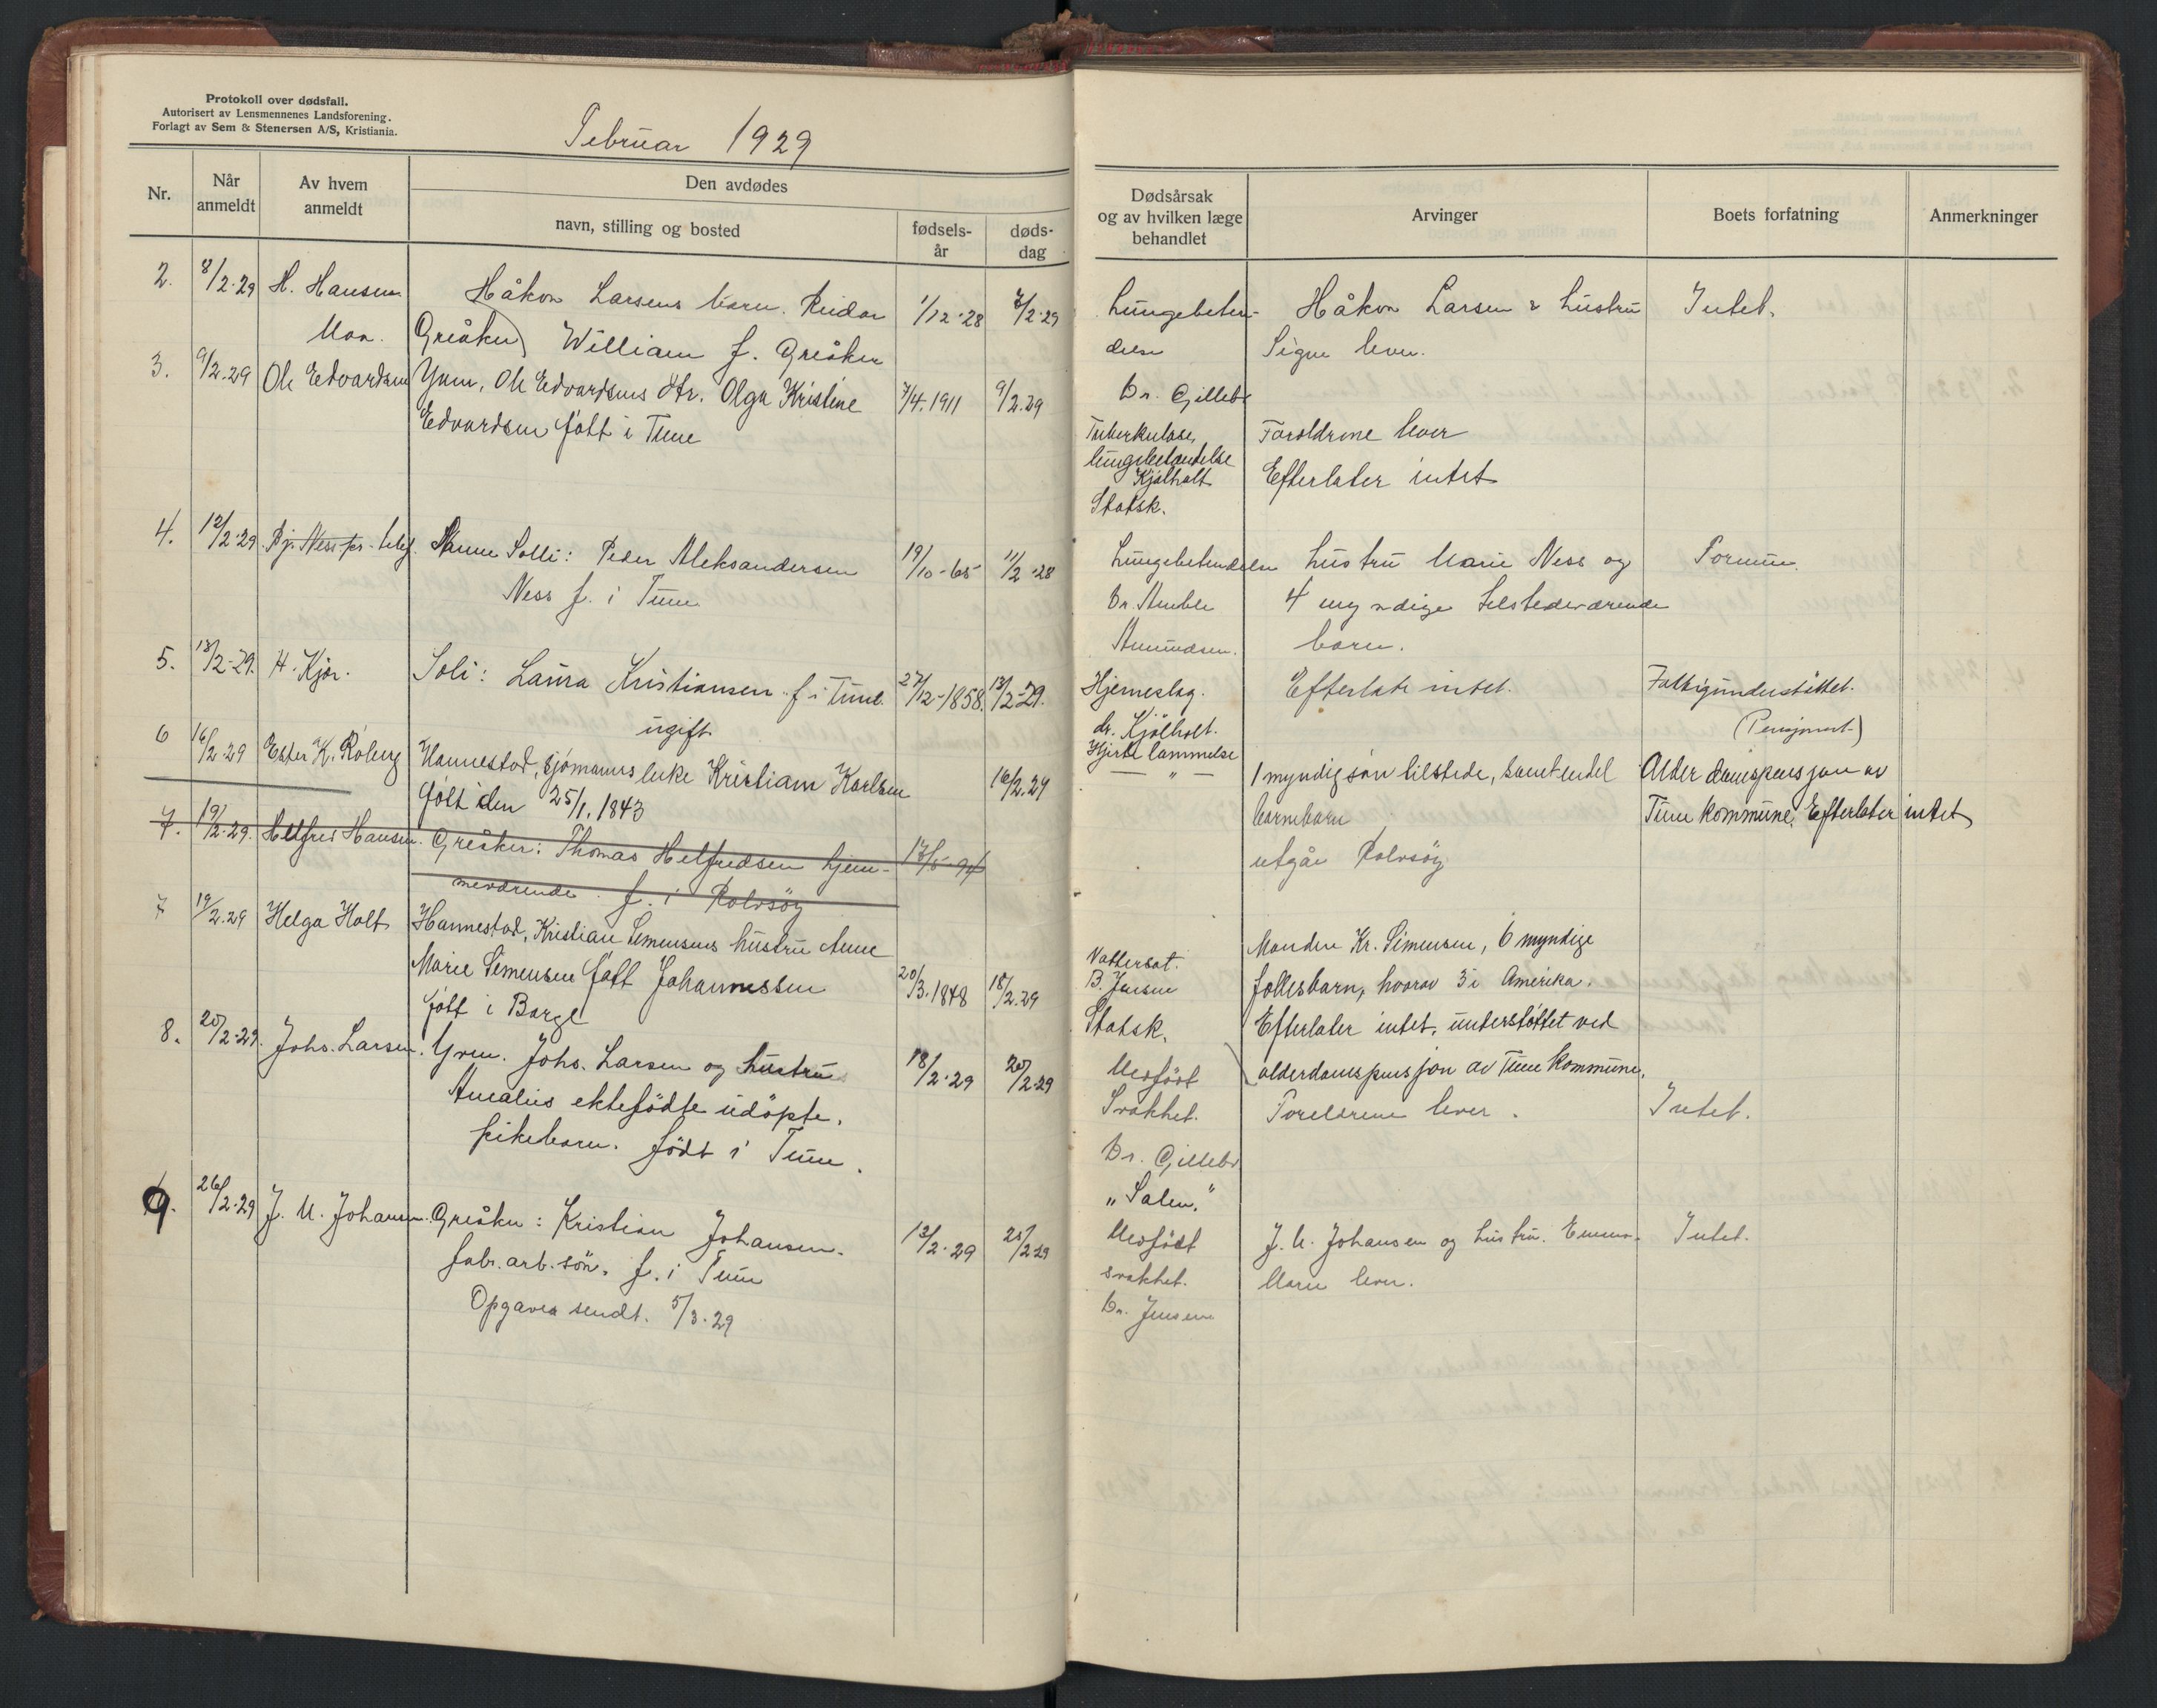 Protokoll over dødsfall.
Autorisert av Lensmennenes Landsforening.
Forlagt av Sem & Stenersen A/S, Kristiania.
Februar 1929
Nr.
Når anmeldt
Av hvem anmeldt
Den avdødes
navn, stilling og bosted
fødsels-år
døds-dag
Dødsårsak og av hvilken læge behandlet
Arvinger
Boets forfatning
Anmerkninger
2. 8/2-29 H. Hansen Håkon Larsens barn. Reidar 1/12-28 7/2-29 Lungebeten- Håkon Larsen & hustru Intet.
Moa. Greåker William f. Greåker delse Signe lever.
3. 9/2.29 Ole Edvardsen Yven, Ole Edvardsens dtr. Olga Kristine 7/4.1911 9/2.29 Dr. Gilleb
Edvardsen født i Tune Tuberkuløse, Foreldrene lever
lungebetendelse
Kjølholt Efterlater intet
Statsk.
4. 12/2-29 Bj. Ness pr. telef. Solli: Peder Aleksandersen 19/10-65 11/2-28 Lungebetendelse hustru Marie Ness og Formue.
Ness f. i Tune Dr. 4 myndige tilstedeværende
Amundsen. barn.
5. 13/2-29. H. Kjær. Soli: Laura Kristiansen f. i Tune. 27/12-1858. 13/2-29. Hjerneslag. Efterlater intet. Fattigunderstøttet.
ugift dr. Kjölholt. (Pensjonert)
6 16/2-29 Ester K. Roberg Hannestad, sjømanns enke Kristiane Karlsen 16/2.29 Hjerte lammelse 1 myndig søn tilstede, samt endel Alderdomspensjon av
født den 25/1.1843 — " — barnebarn Tune kommune. Efterlater intet
7. 19/2-29. Helfred Hansen. Greåker: Thomas Helfredsen hjem- 17/5-94 utgår Rolvsöy
meværende. f. i Rolvsöy
7 19/2.29 Helga Holt Hannestad, Kristian Simensens hustru Anne Manden Kr. Simensen, 6 myndige
Marie Simensen født Johannessen 20/3.1848 18/2.29 Vattersot. fellesbarn, hvorav 3 i Amerika.
født i Borge B. Jensen Efterlater intet. understøttet ved
Statsk. alderdomspensjon av Tune kommune.
8. 20/2-29. Johs. Larsen. Yven. Johs. Larsen og hustru 18/2-29 20/2-29 Medfødt
Amalies ektefödte udöpte. Svakhet. Foreldrene lever. Intet.
pikebarn. födt i Tune. Dr. Gilleb
"Salen."
9. 26/2-29 J. M. Johansen. Greåker: Kristian Johansen. 12/2-29 25/2-29 Medfödt J. M. Johansen og hustru. Emma Intet.
fabr.arb. sön. f. i Tune svakhet. Marie lever.
Opgaven sendt. 5/3-29 Dr. Jensen